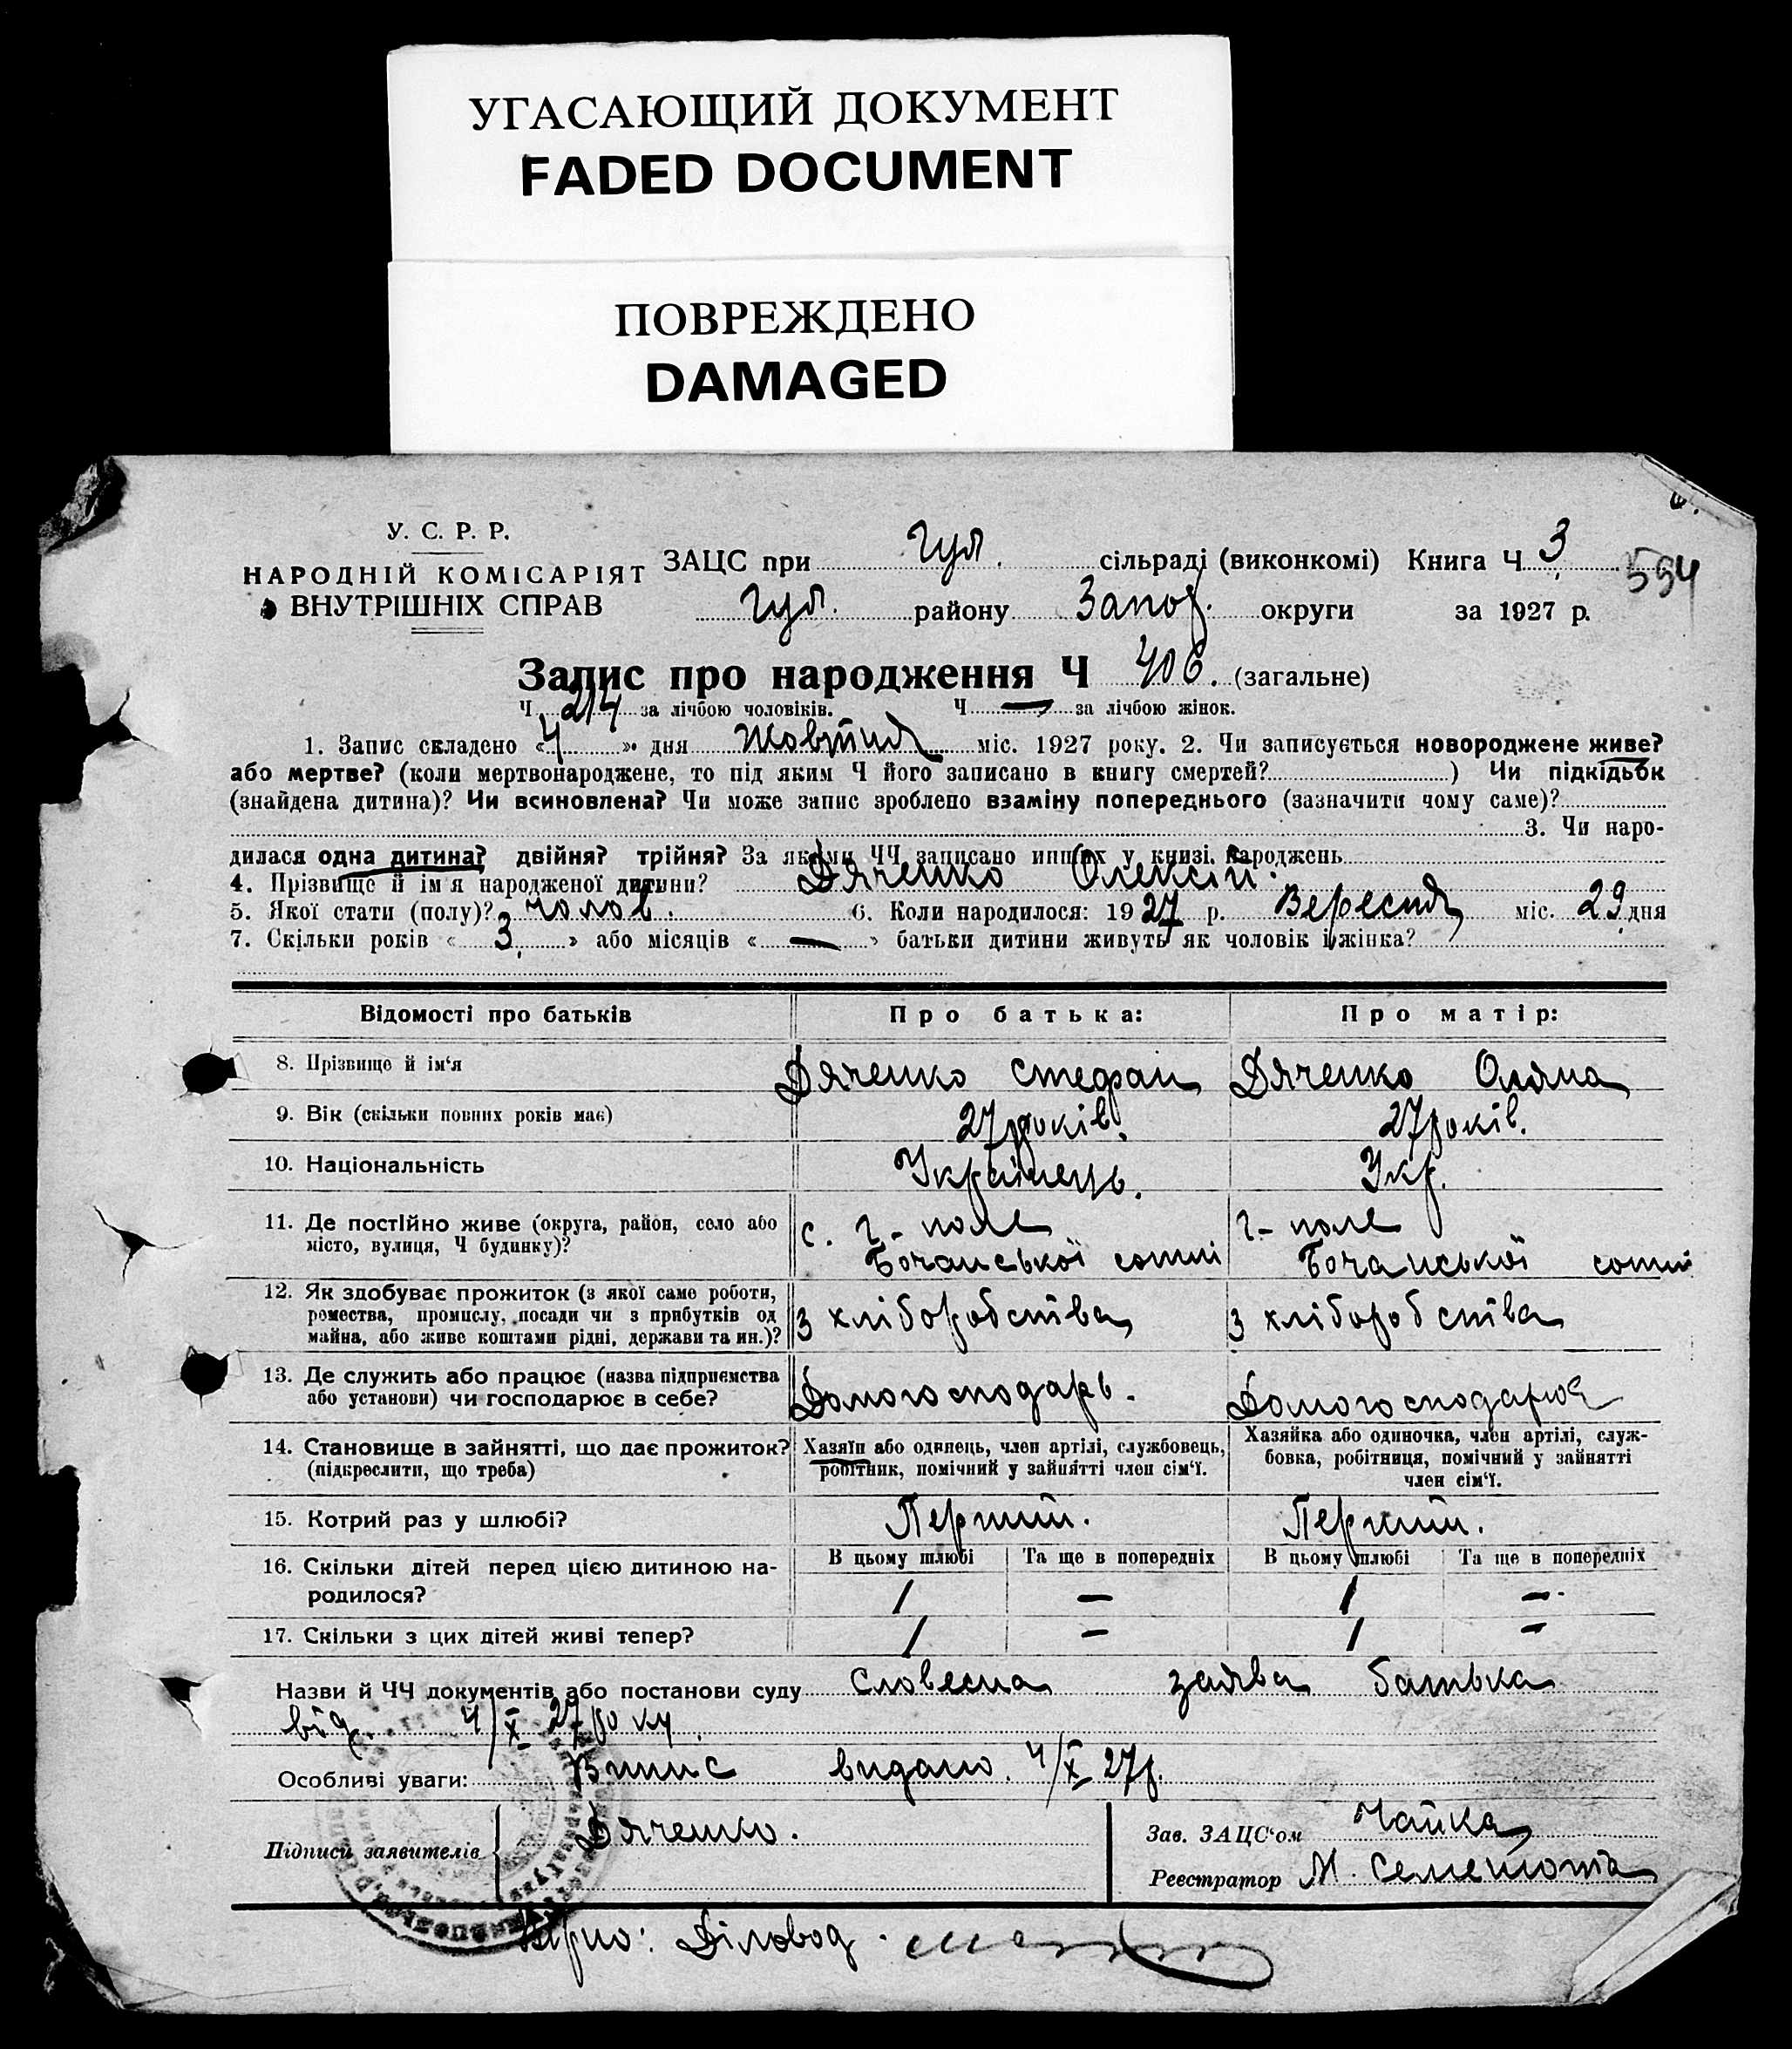 УГАСАЮЩИЙ ДОКУМЕНТ
FADED DOCUMENT
ПОВРЕЖДЕНО
DAMAGED
У. С. Р. Р.
НАРОДНІЙ КОМІСАРІЯТ
ВНУТРІШНІХ СПРАВ
ЗАЦС при Гул. сільраді (виконкомі) Книга Ч 3
594
Гул. району Запор. округи за 1927 р.
Запис про народження Ч 406. (загальне)
Ч 214 за лічбою чоловіків. Ч — за лічбою жінок.
1. Запис складено «4» дня Жовтня міс. 1927 року. 2. Чи записується новороджене живе?
або мертве? (коли мертвонароджене, то під яким Ч його записано в книгу смертей? ) Чи підкідьок
(знайдена дитина)? Чи всиновлена? Чи може запис зроблено взаміну попереднього (зазначити чому саме)?
3. Чи наро-
дилася одна дитина? двійня? трійня? За якими ЧЧ записано инших у книзі народжень
4. Прізвище й ім'я народженої дитини? Дяченко Олексій.
5. Якої стати (полу)? чолов. 6. Коли народилося: 1927 р. Вересня міс. 29 дня
7. Скільки років « 3 » або місяців « — » батьки дитини живуть як чоловік і жінка?
Відомості про батьків Про батька: Про матір:
8. Прізвище й ім'я Дяченко Стефан Дяченко Оляна
9. Вік (скільки повних років має) 27 років. 27 років.
10. Національність Українець. Укр.
11. Де постійно живе (округа, район, село або с. Г-поле Г-поле
місто, вулиця, Ч будинку)? Бочанської сотні Бочанської сотні
12. Як здобуває прожиток (з якої саме роботи,
ремества, промислу, посади чи з прибутків од
майна, або живе коштами рідні, держави та ин.)? З хліборобства З хліборобства
13. Де служить або працює (назва підприємства
або установи) чи господарює в себе? Домогосподарь. Домогосподарює
14. Становище в зайнятті, що дає прожиток? Хазяїн або одинець, член артілі, службовець, Хазяйка або одиночка, член артілі, служ-
(підкреслити, що треба) робітник, помічний у зайнятті член сім'ї. бовка, робітниця, помічний у зайнятті
член сім'ї.
15. Котрий раз у шлюбі? Перший. Перший.
16. Скільки дітей перед цією дитиною на- В цьому шлюбі Та ще в попередніх В цьому шлюбі Та ще в попередніх
родилося? 1 — 1 —
17. Скільки з цих дітей живі тепер? 1 — 1 —
Назви й ЧЧ документів або постанови суду Словесна заява батька
від 4/X 27 року
Особливі уваги: Випис видано. 4/X 27р.
Підписи заявителів Дяченко. Зав. ЗАЦС'ом Чайка
Реєстратор М.
Вірно: Діловод.